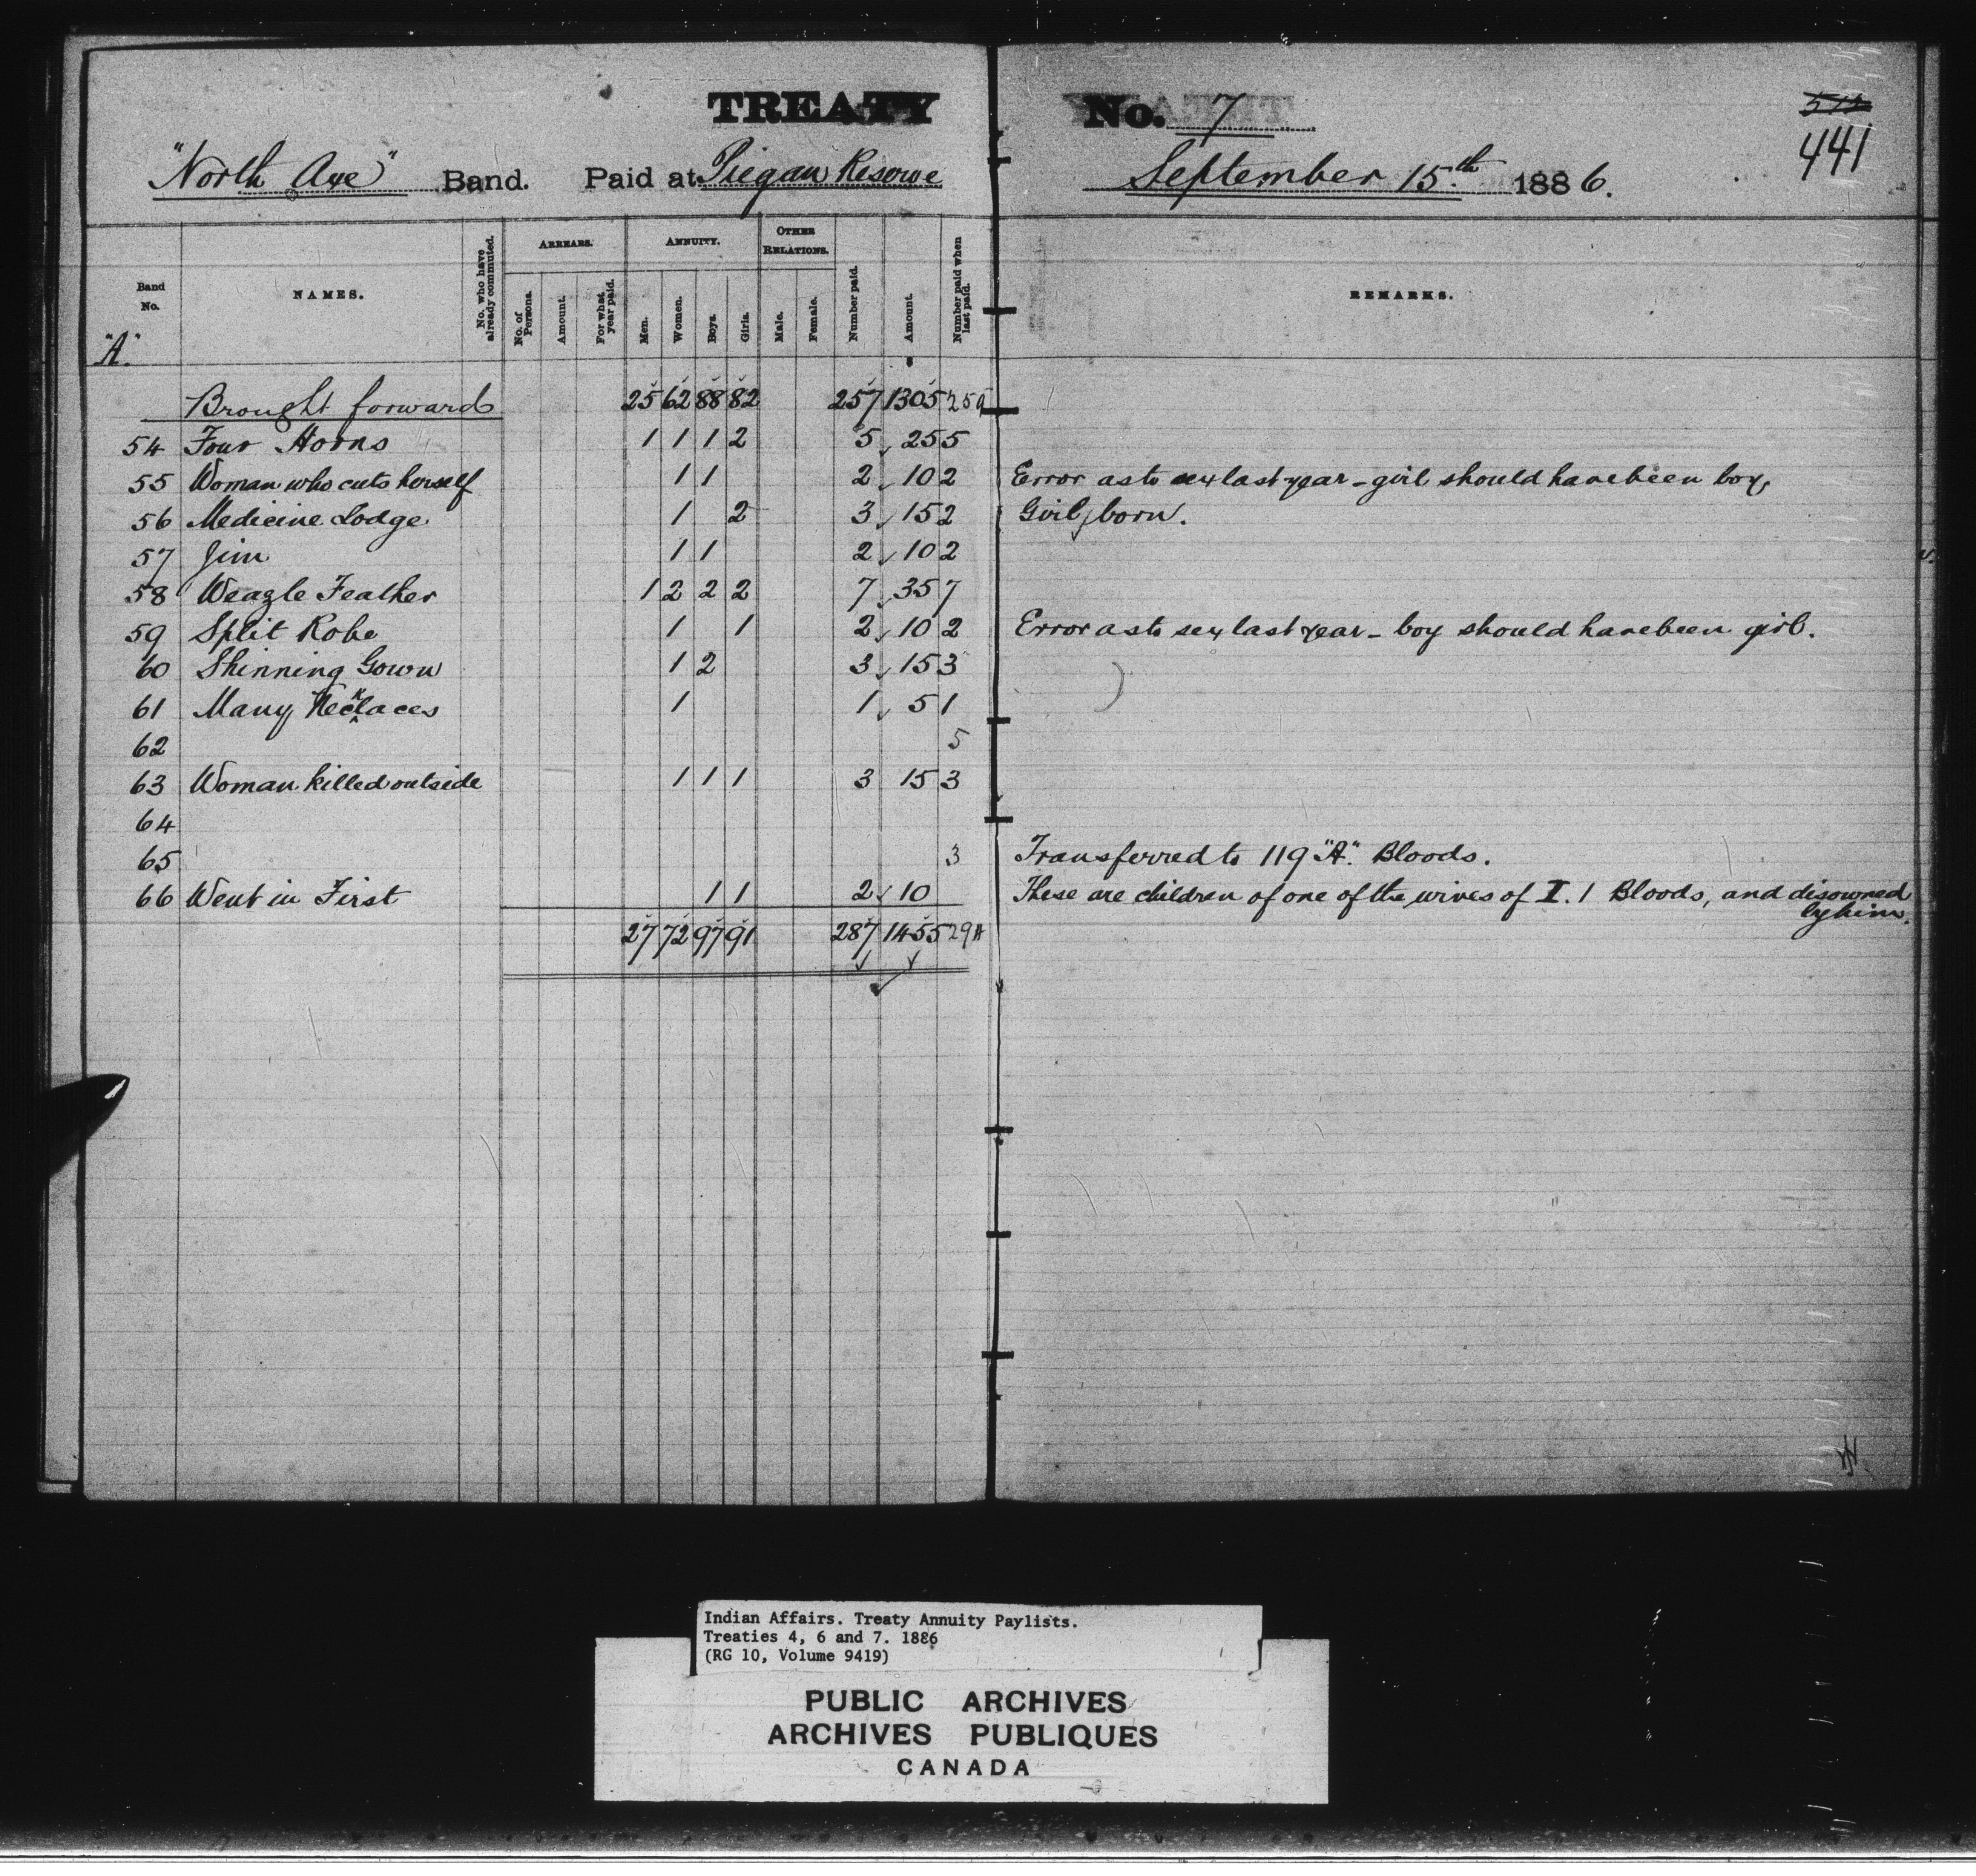 TREATY No. 7
441
"North Axe" Band. Paid at Piegan Reserve September 15.th 1886.
Band No. NAMES. No. who have already commuted. ARREARS. No. of Persons. Amount. For what year paid. ANNUITY. Men. Women. Boys. Girls. OTHER RELATIONS. Male. Female. Number paid. Amount. Number paid when last paid. REMARKS.
"A"
Brought forward 25 62 88 82 257 1305 259
54 Four Horns 1 1 1 2 5 25 5
55 Woman who cuts herself 1 1 2 10 2 Error as to sex last year - girl should have been boy,
56 Medicine Lodge 1 2 3 15 2 Girl born.
57 Jim 1 1 2 10 2
58 Weazle Feather 1 2 2 2 7 35 7
59 Split Robe 1 1 2 10 2 Error as to sex last year - boy should have been girl.
60 Shinning Gown 1 2 3 15 3
61 Many Necklaces 1 1 5 1
62 5
63 Woman killed outside 1 1 1 3 15 3
64
65 3 Transferred to 119 "A". Bloods.
66 Went in First 1 1 2 10 These are children of one of the wives of I. 1 Bloods, and disowned
by him.
27 72 97 91 287 1455
Indian Affairs. Treaty Annuity Paylists.
Treaties 4, 6 and 7. 1886
(RG 10, Volume 9419)
PUBLIC ARCHIVES
ARCHIVES PUBLIQUES
CANADA